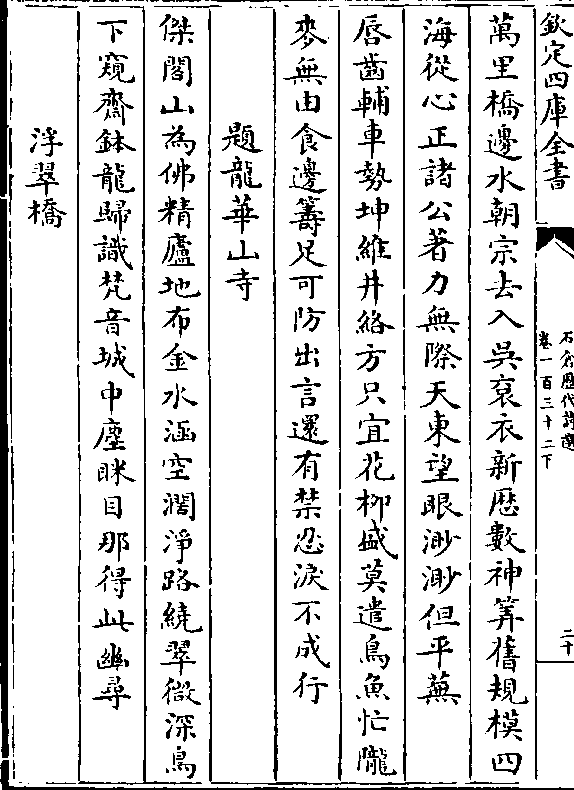 欽定四庫全書
石倉歷代詩選
卷一百三十二下
二十
萬里橋邊水朝宗去入吳袞衣新歴數神筭舊規模四
海從心正諸公著力無際天東望眼渺渺但平蕪
唇齒輔車勢坤維井絡方只宜花柳盛莫遣鳥魚忙隴
麥無由食邊籌足可防出言還有禁忍淚不成行
題龍華山寺
傑閣山為佛精廬地布金水涵空濶淨路繞翠微深鳥
下窺齋鉢龍歸識梵音城中塵眯目那得此幽尋
浮翠橋